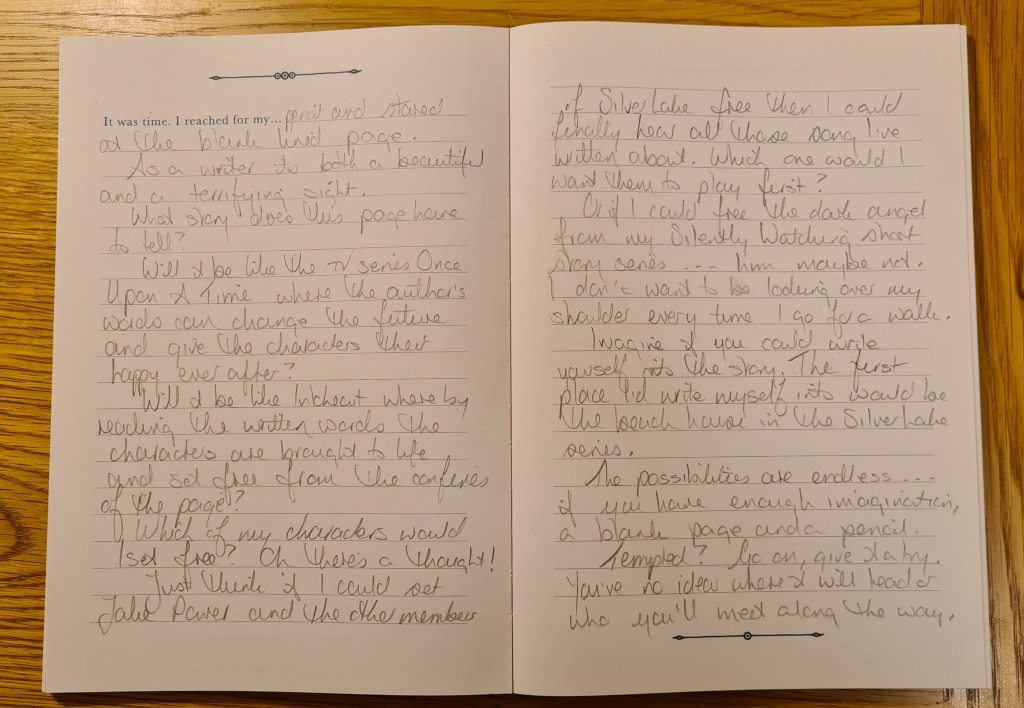 It was time. I reached for my... pencil and stared
at the blank lined page.
As a writer its both a beautiful
and a terrifying sight.
What story does this page have
to tell?
Will it be like the TV series Once
Upon A Time where the author's
words can change the future
and give the characters their
happy ever after?
Will it be like Inkheart where by
reading the written words the
characters are brought to life
and set free from the confines
of the page?
Which of my characters would
I set free? Oh there's a thought!
Just think if I could set
Jake Power and the other members
of Silver Lake free then I could
finally hear all those song I've
written about. Which one would I
want them to play first?
Or if I could free the dark angel
from my Silently Watching short
story series .... hmm maybe not.
I don't want to be looking over my
shoulder every time I go for a walk.
Imagine if you could write
yourself into the story. The first
place I'd write myself into would be
the beach house in the Silver Lake
series.
The possibilities are endless ....
if you have enough imagination,
a blank page and a pencil.
Tempted? Go on, give it a try.
You've no idea where it will lead or
who you'll meet along the way.